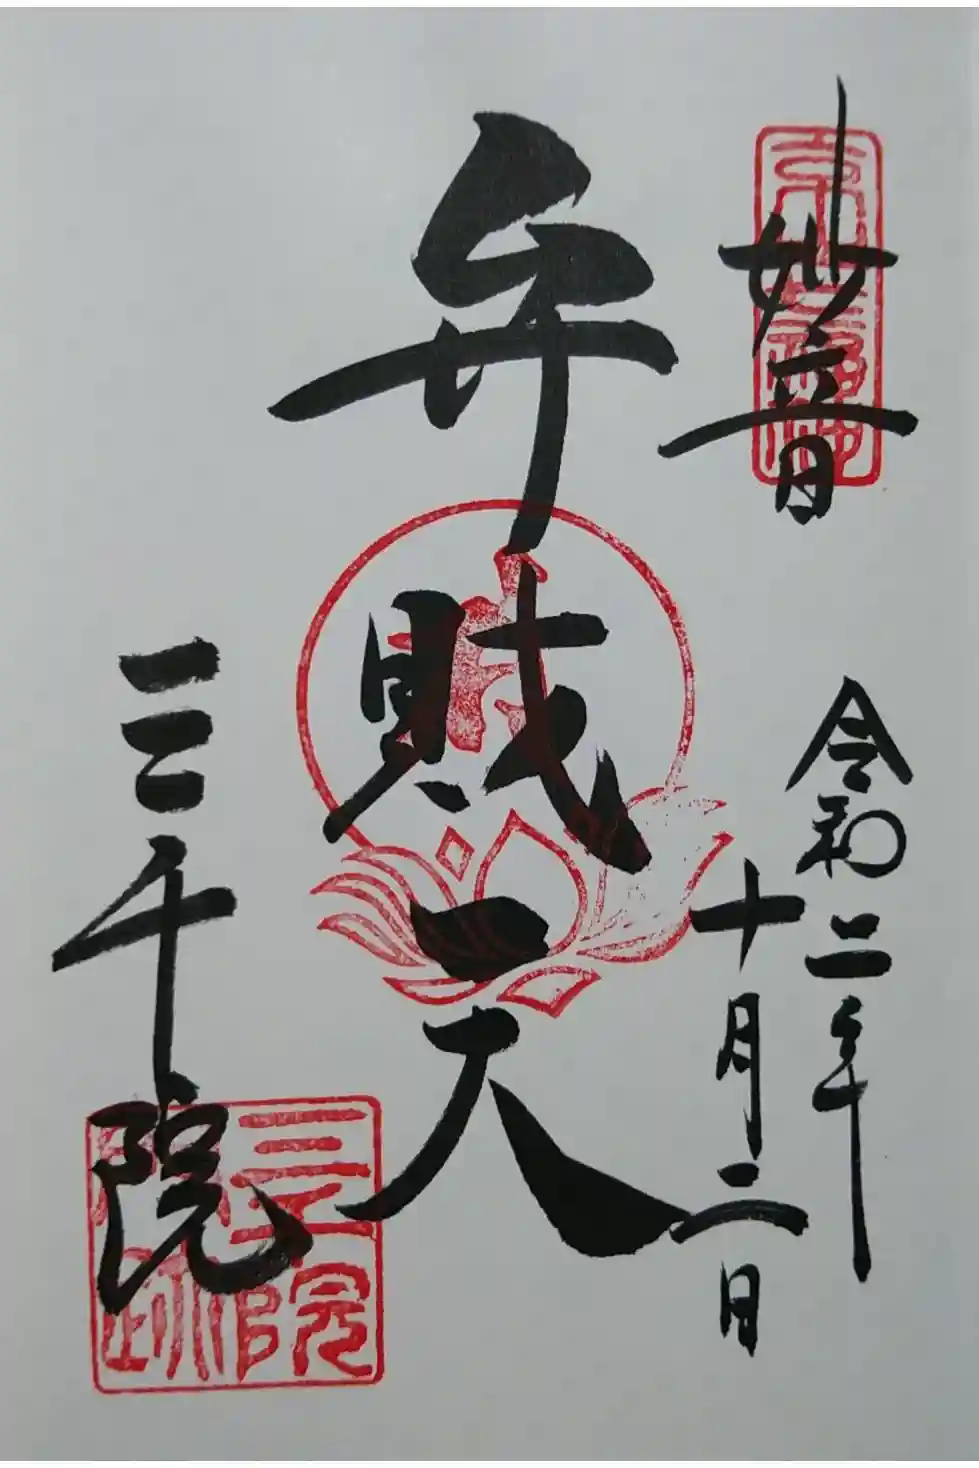 妙音
令和二年
十月二日
弁財天
三千院